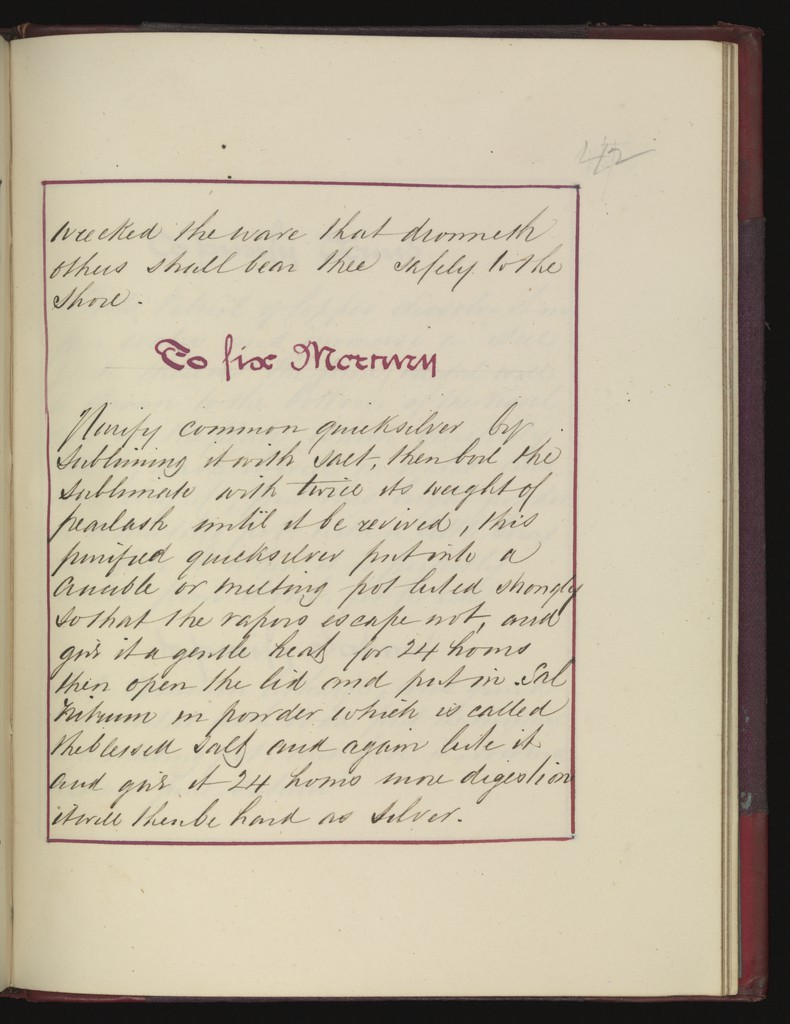 42
wrecked the wave that drowneth
others shall bear thee safely to the
shore.
To fix Mercury
Purify common quicksilver by
subliming it with salt, then boil the
sublimate with twice its weight of
pearlash until it be revived, this
purified quicksilver put into a
crucible or melting pot luted strongly
so that the vapors escape not, and
give it a gentle heat for 24 hours
then open the lid and put in Sal
in powder which is called
the blessed salt and again lute it
and give it 24 hours more digestion
it will then be hard as silver.